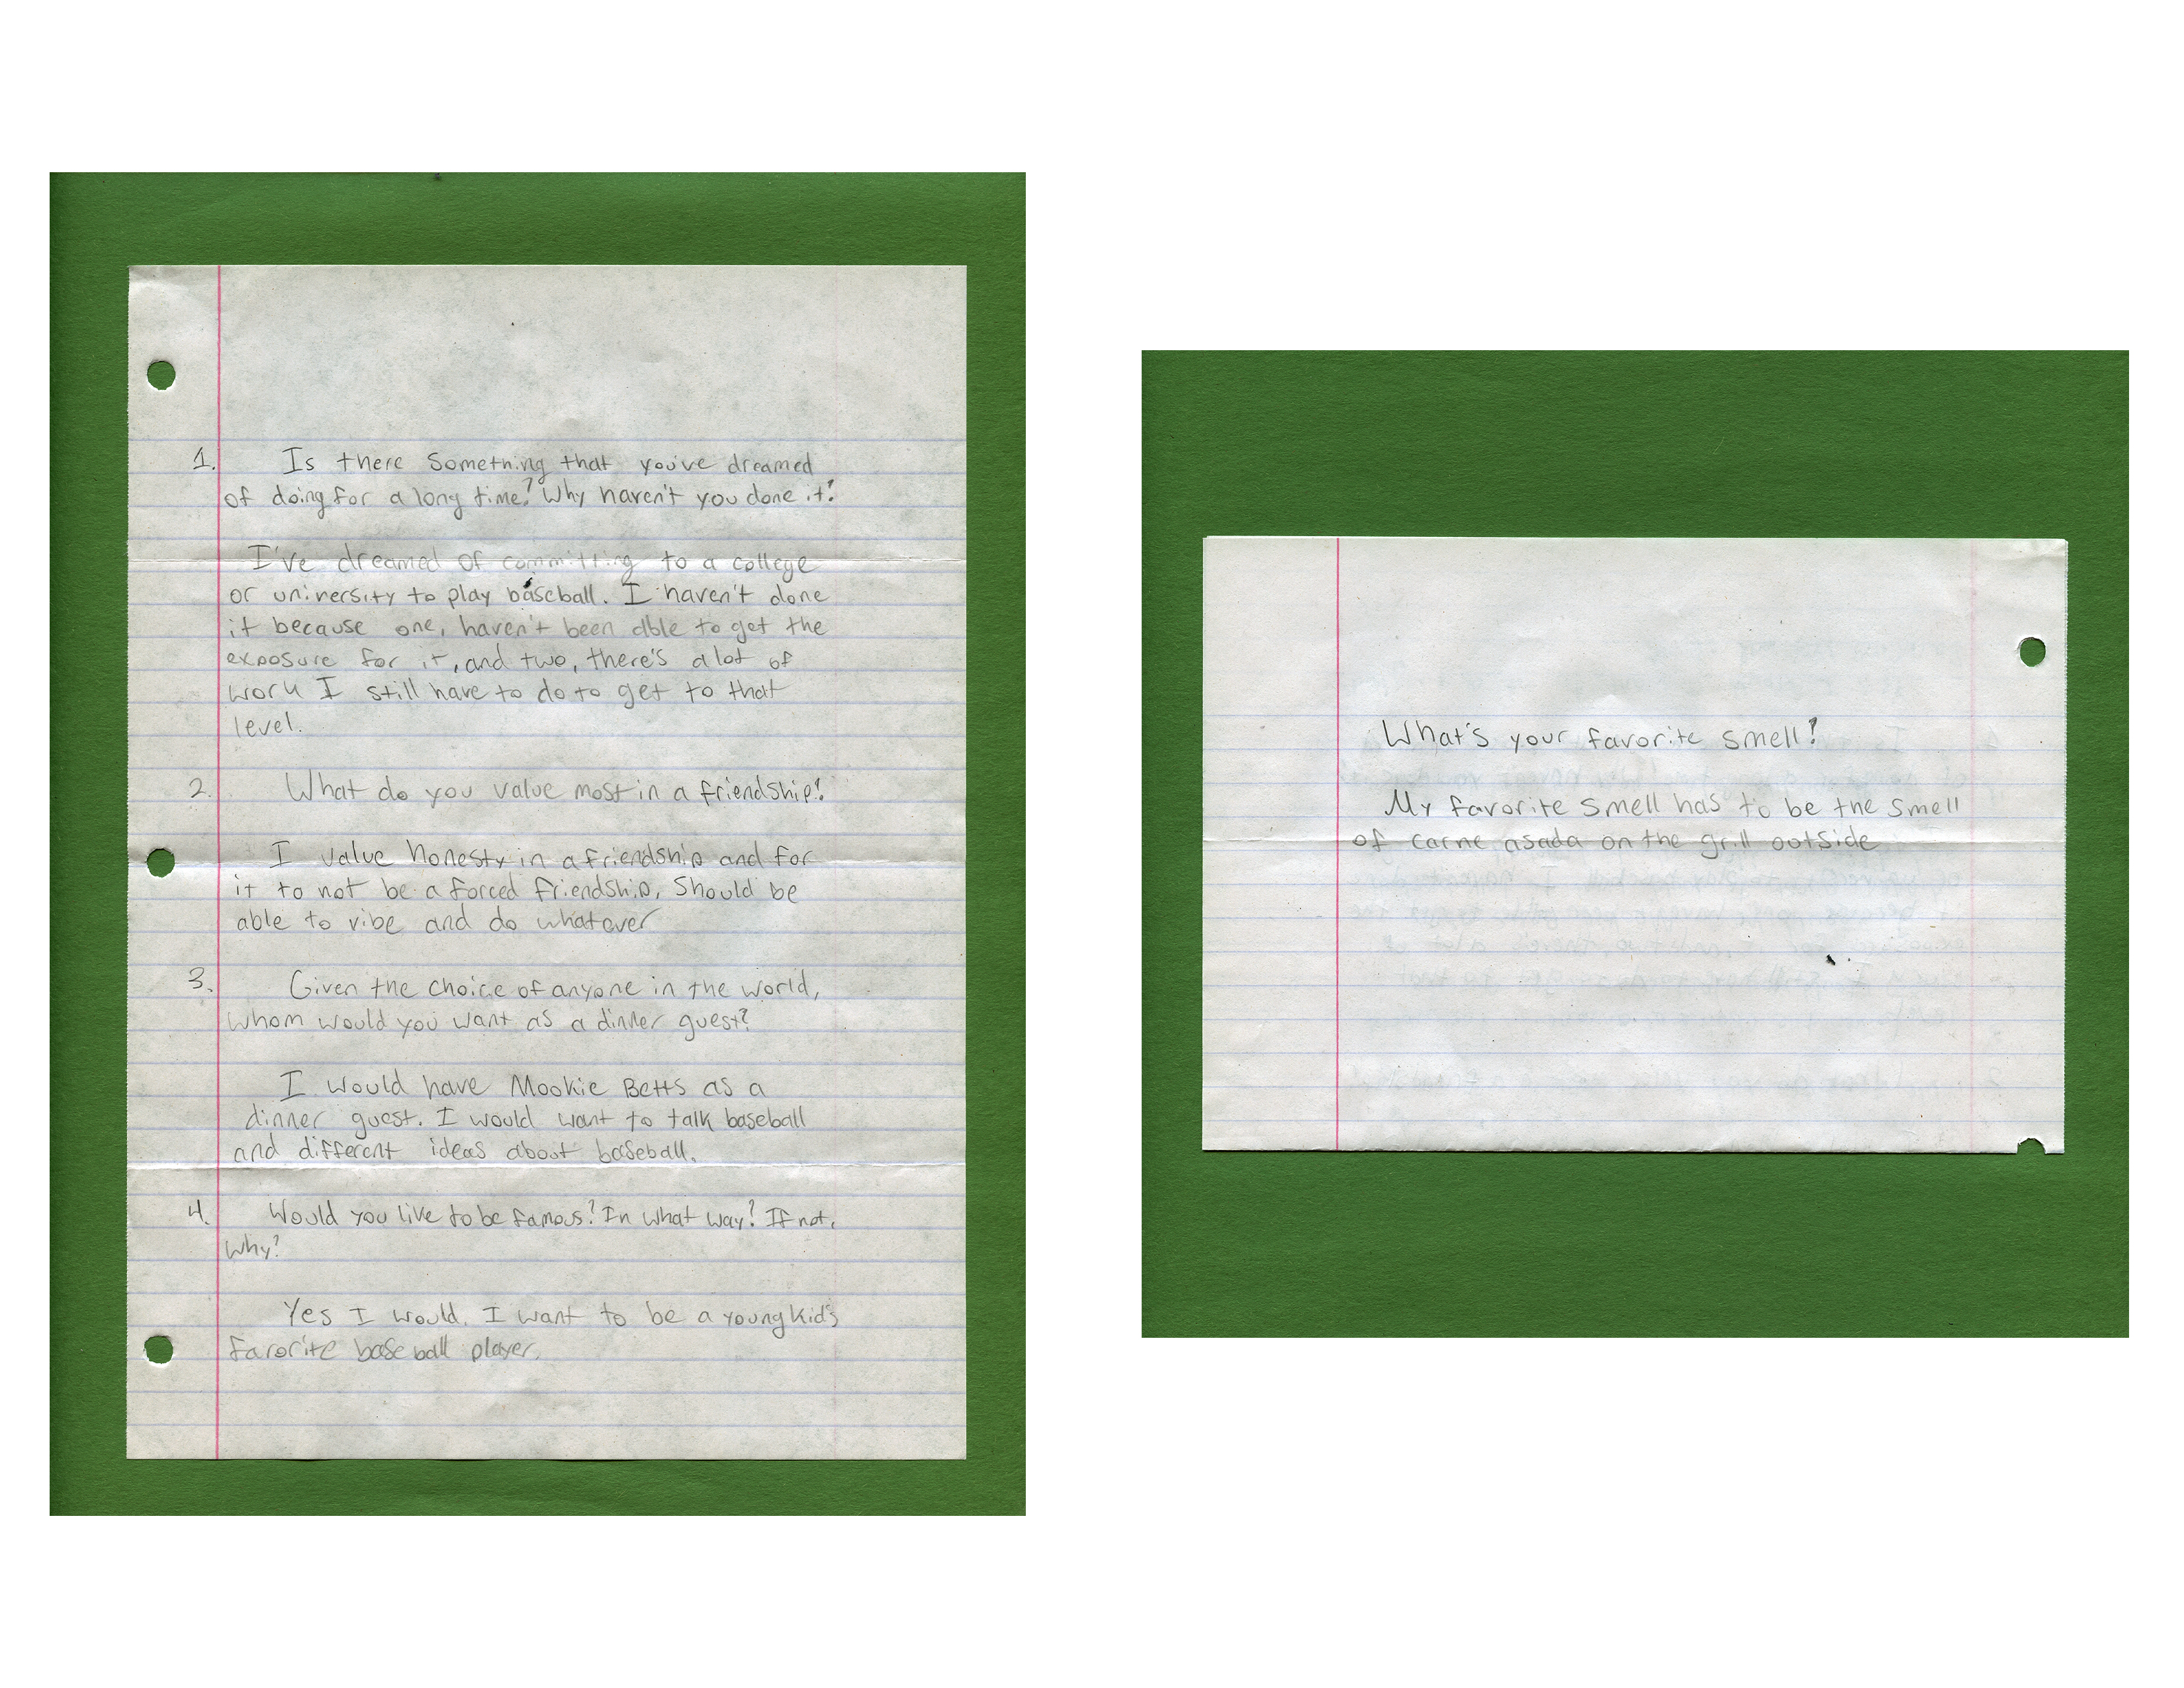 1. Is there something that you've dreamed
of doing for a long time? Why haven't you done it?
I've dreamed of committing to a college
or university to play baseball. I haven't done
it because one, haven't been able to get the
exposure for it, and two, there's a lot of
work I still have to do to get to that
level.
2. What do you value most in a friendship?
I value honesty in a friendship and for
it to not be a forced friendship, should be
able to vibe and do whatever
3. Given the choice of anyone in the world,
whom would you want as a dinner guest?
I would have Mookie Betts as a
dinner guest. I would want to talk baseball
and different ideas about baseball.
4. Would you live to be famous? In what way? If not,
why?
Yes I would. I want to be a young kid's
favorite baseball player.
What's your favorite smell?
My favorite smell has to be the smell
of carne asada on the grill outside